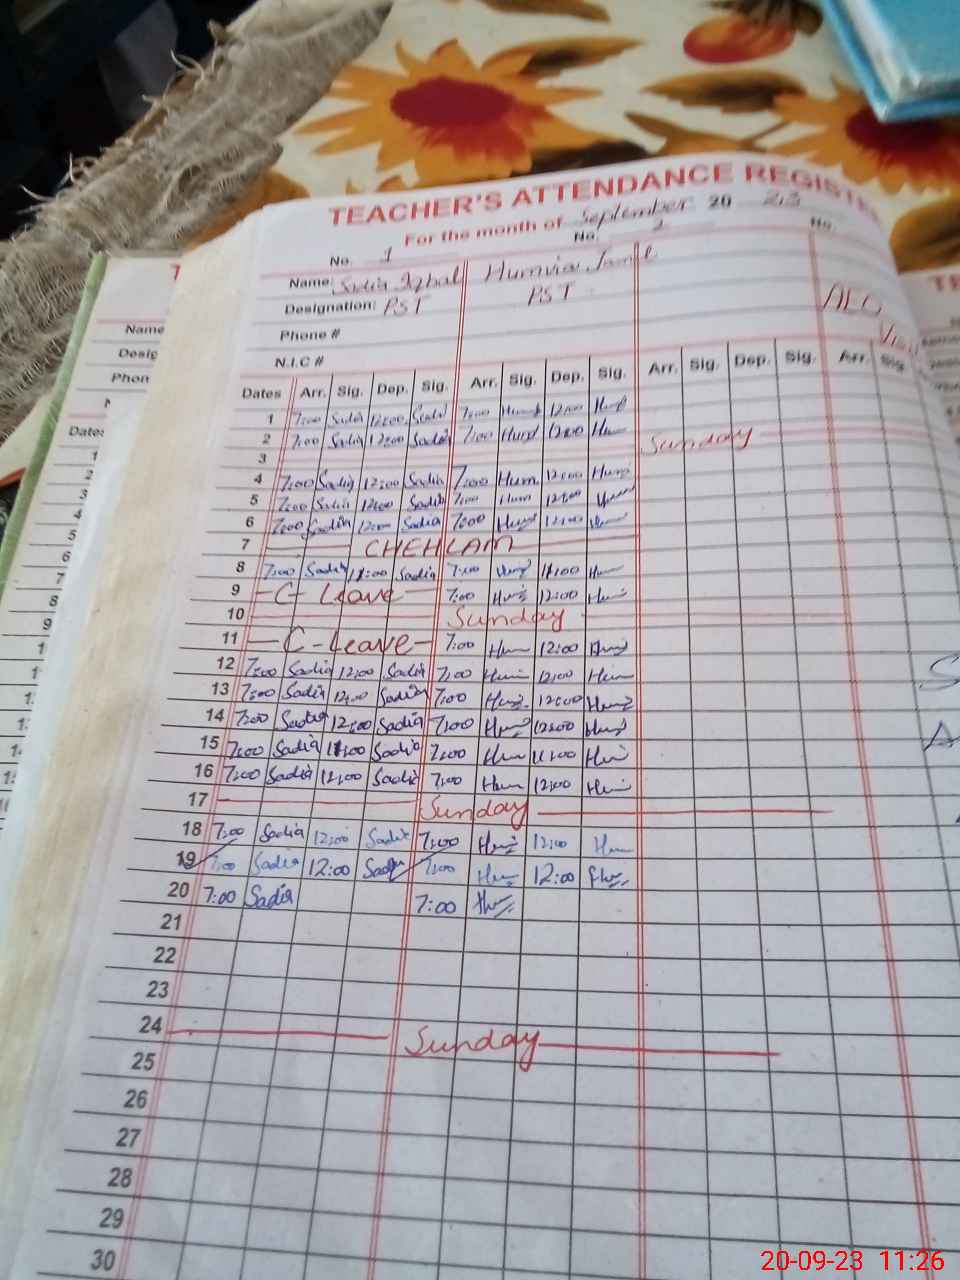 TEACHER'S ATTENDANCE REGIST
For the month of September 20 23
No. 1 No. 2 No.
Name: Sadia Iqbal Humvia Jamil
Designation: PST PST AEO
Phone # Visit
N.I.C #
Dates Arr. Sig. Dep. Sig. Arr. Sig. Dep. Sig. Arr. Sig. Dep. Sig. Arr. Sig.
1 7:00 Sadia 12:00 Sadia 7:00 12:00
2 7:00 Sadia 12:00 Sadia 7:00 12:00
3 Sunday
4 7:00 Sadia 12:00 Sadia 7:00 Hum 12:00
5 7:00 Sadia 12:00 Sadia 7:00 Hum 12:00
6 7:00 Sadia 12:00 Sadia 7:00 12:00
7 CHEHLAM
8 7:00 Sadia 11:00 Sadia 7:00 11:00
9 - C - Leave - 7:00 12:00
10 Sunday
11 - C - Leave - 7:00 12:00
12 7:00 Sadia 12:00 Sadia 7:00 12:00
13 7:00 Sadia 12:00 Sadia 7:00 12:00
14 7:00 Sadia 12:00 Sadia 7:00 12:00
15 7:00 Sadia 11:00 Sadia 7:00 11:00
16 7:00 Sadia 12:00 Sadia 7:00 12:00
17 Sunday
18 7:00 Sadia 12:00 Sadia 7:00 12:00
19 7:00 Sadia 12:00 Sadia 7:00 12:00
20 7:00 Sadia 7:00
21
22
23
24 Sunday
25
26
27
28
29
30
Name
Desig
Phon
Dates
1
2
3
4
5
6
7
8
9
20-09-23 11:26